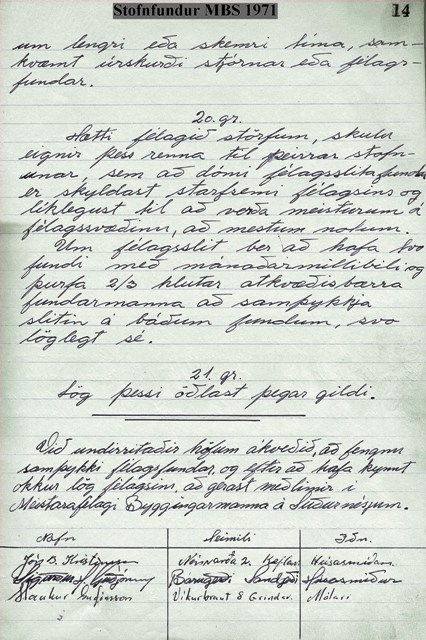 Stofnfundur MBS 1971
14
um lengri eða skemri tíma, sam-
kvæmt úrskurði stjórnar eða félags-
fundar.
20. gr.
Hætti félagið störfum, skulu
eignir þess renna til þeirrar stofn-
unar, sem að dómi félagsslitafundar
er skyldast starfremi félagsins og
líklegust til að verða meisturum á
félagssvæðinu, að mestum notum.
Um félagsslit ber að hafa tvo
fundi með mánaðarmillibili og
þurfa 2/3 hlutar atkvæðisbærra
fundarmanna að samþykkja
slitin á báðum fundum, svo
löglegt sé.
21. gr.
Lög þessi öðlast þegar gildi.
Við undirritaðir höfum ákveðið, að fengnu
samþykki félagsfundar, og eftir að hafa kynnt
okkur lög félagsins, að gerast meðlimir í
Meistarafélagi Byggingarmanna á Suðurnesjum.
Nafn Heimili Iðn.
2. Keflav. Húsasmíðam.
Sandgerði Húsasmiður
Haukur Guðjónsson Víkurbraut 8 Grindav. Málari